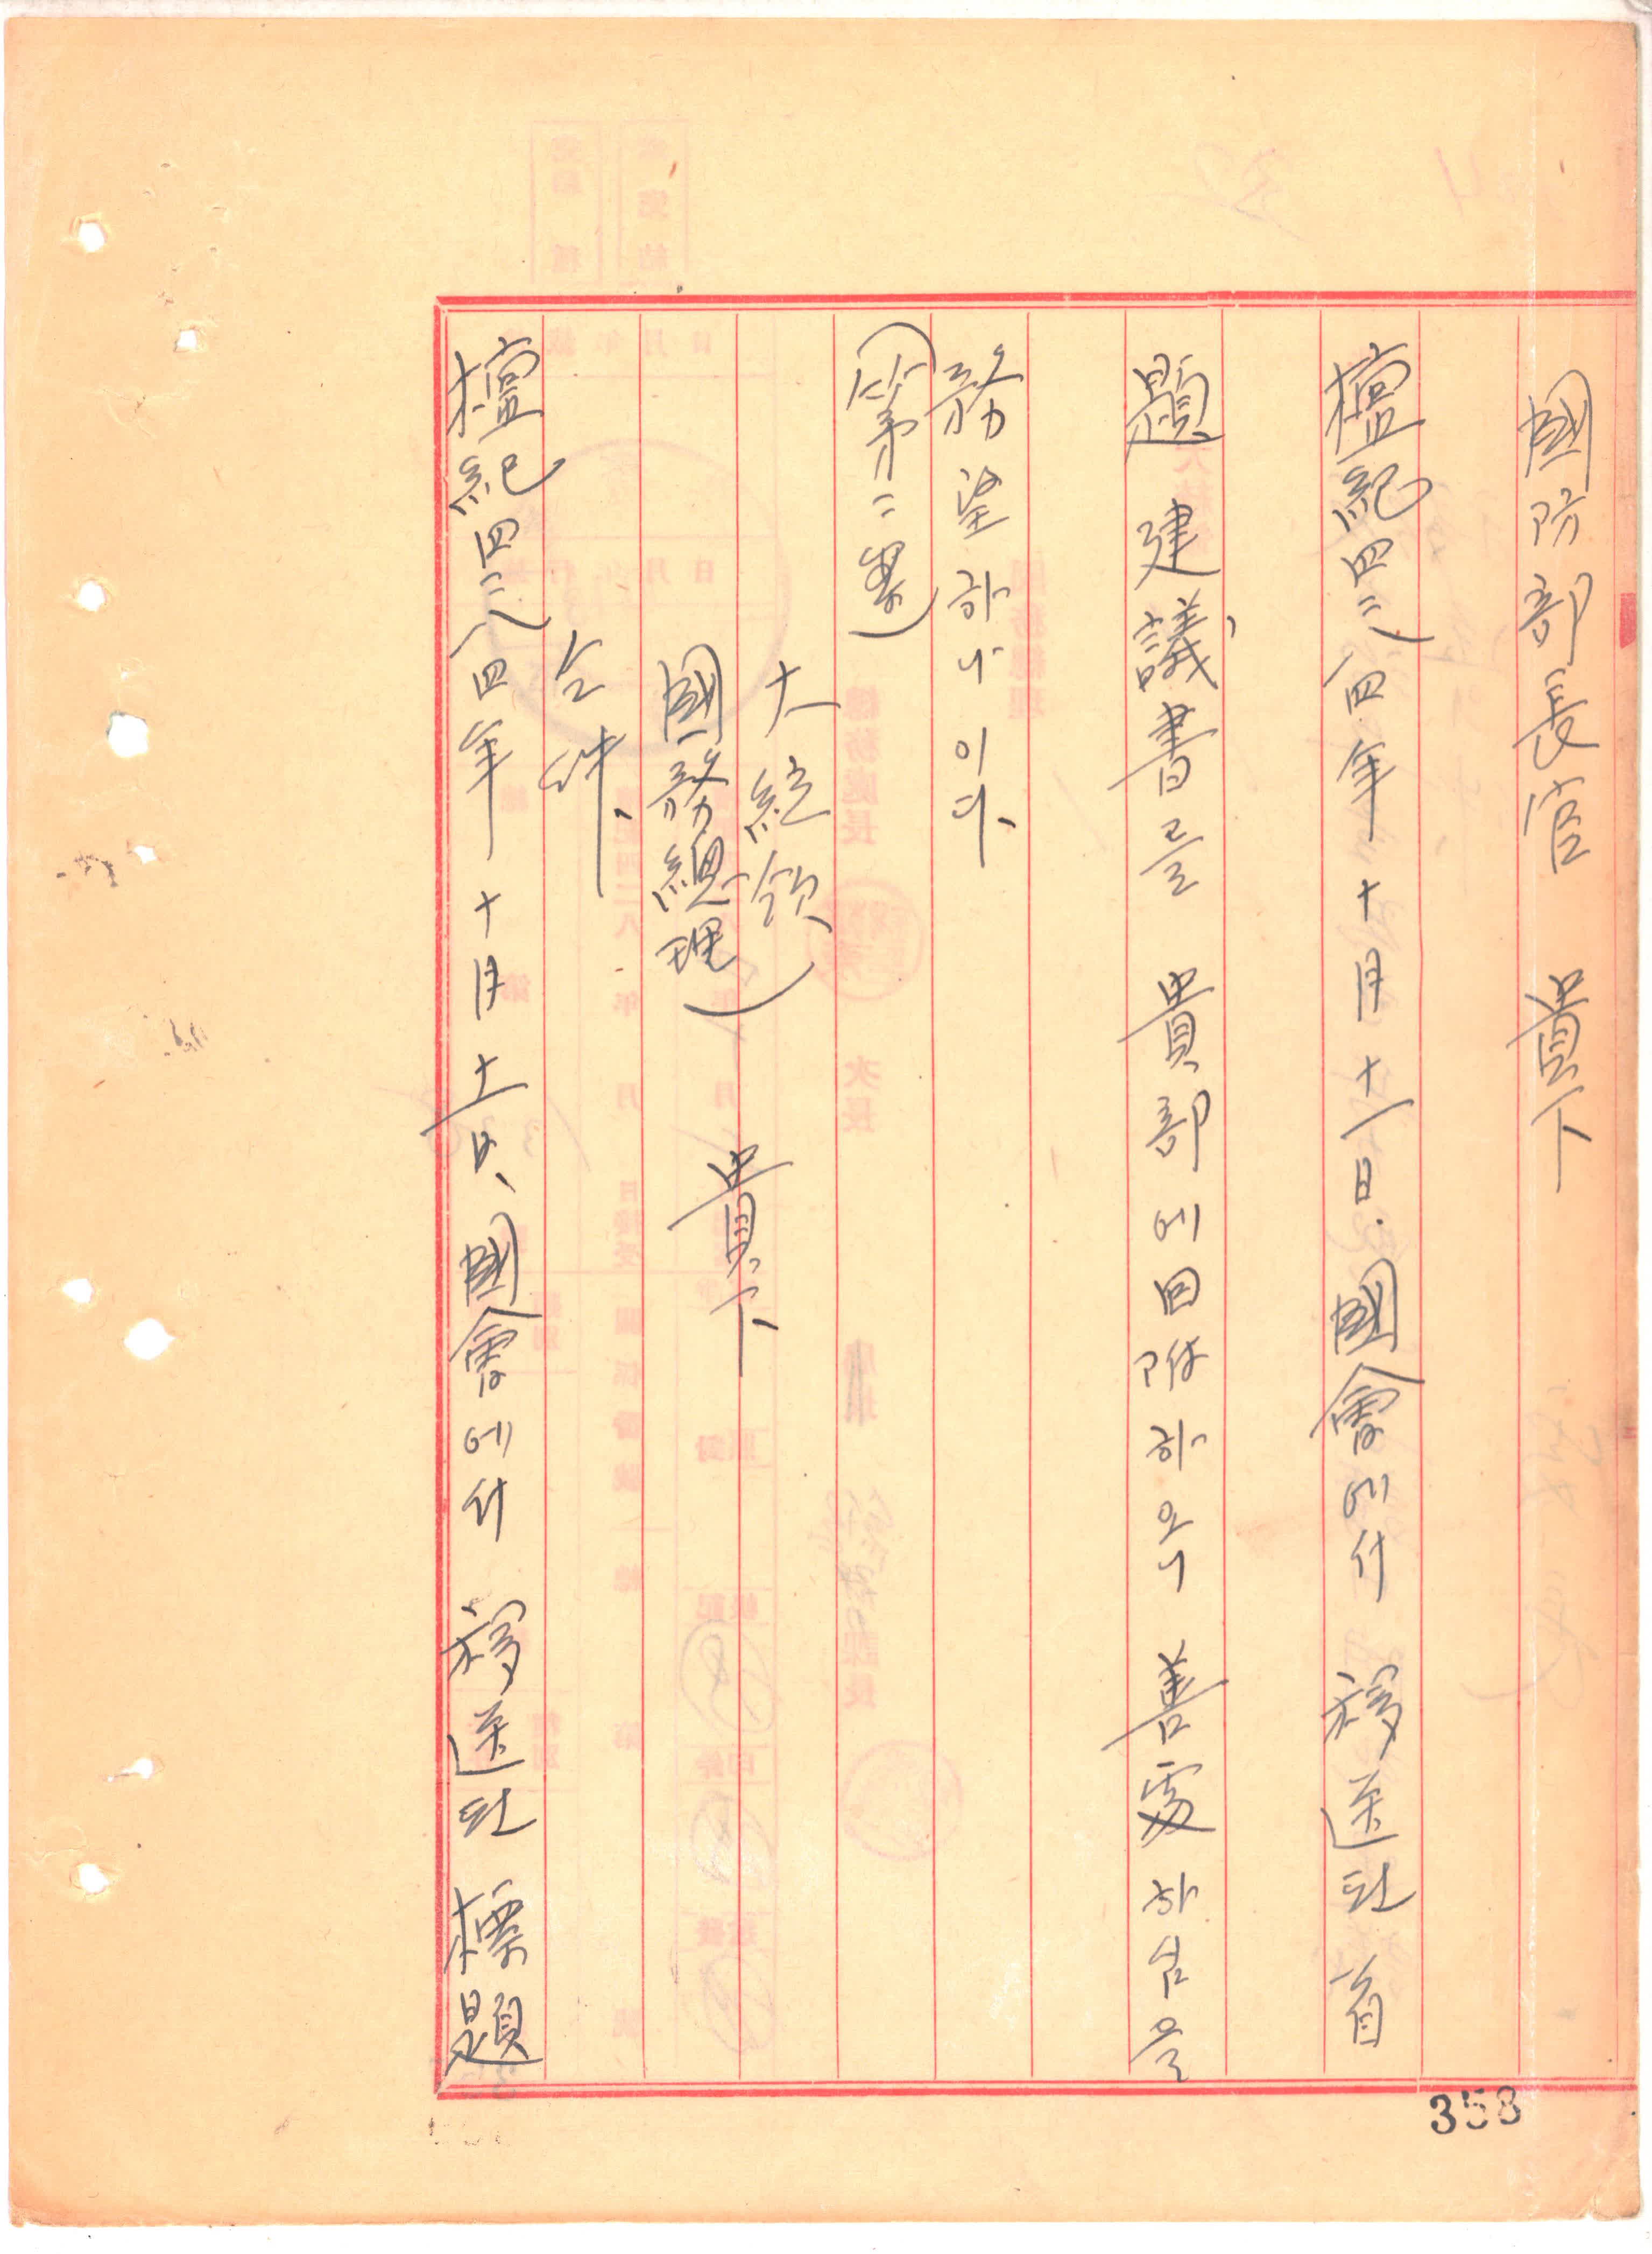 國防部長官 貴下
檀紀四二八四年十月十一日. 國會에서 移送된 首
題 建議書를 貴部에 回附하오니 善處하심을
務望하나이다.
(第二案)
大統領
國務總理) 貴下
仝件、
檀紀四二八四年十月十一日、國會에서 移送된 標題
358